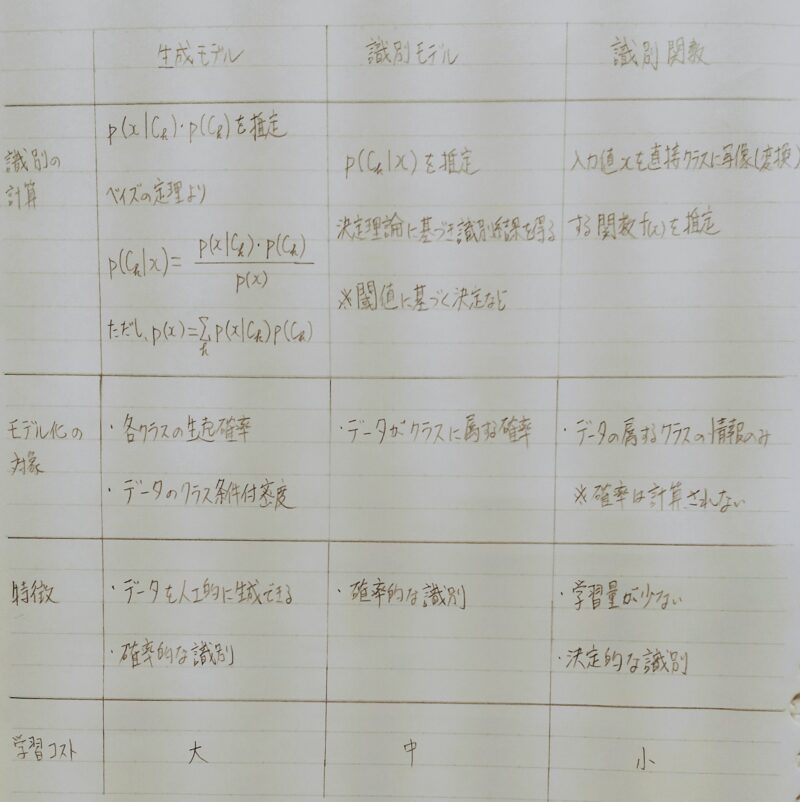 生成モデル 識別モデル 識別関数
識別の
計算
p(x|Ck)・p(Ck)を推定
ベイズの定理より
p(Ck|x) = p(x|Ck)・p(Ck) / p(x)
ただし、p(x)=Σk p(x|Ck)p(Ck)
p(Ck|x)を推定
決定理論に基づき識別結果を得る
※閾値に基づく決定など
入力値xを直接クラスに写像(変換)
する関数f(x)を推定
モデル化の
対象
・各クラスの生起確率
・データのクラス条件付密度
・データがクラスに属する確率
・データの属するクラスの情報のみ
※確率は計算されない
特徴
・データを人工的に生成できる
・確率的な識別
・確率的な識別
・学習量が少ない
・決定的な識別
学習コスト 大 中 小